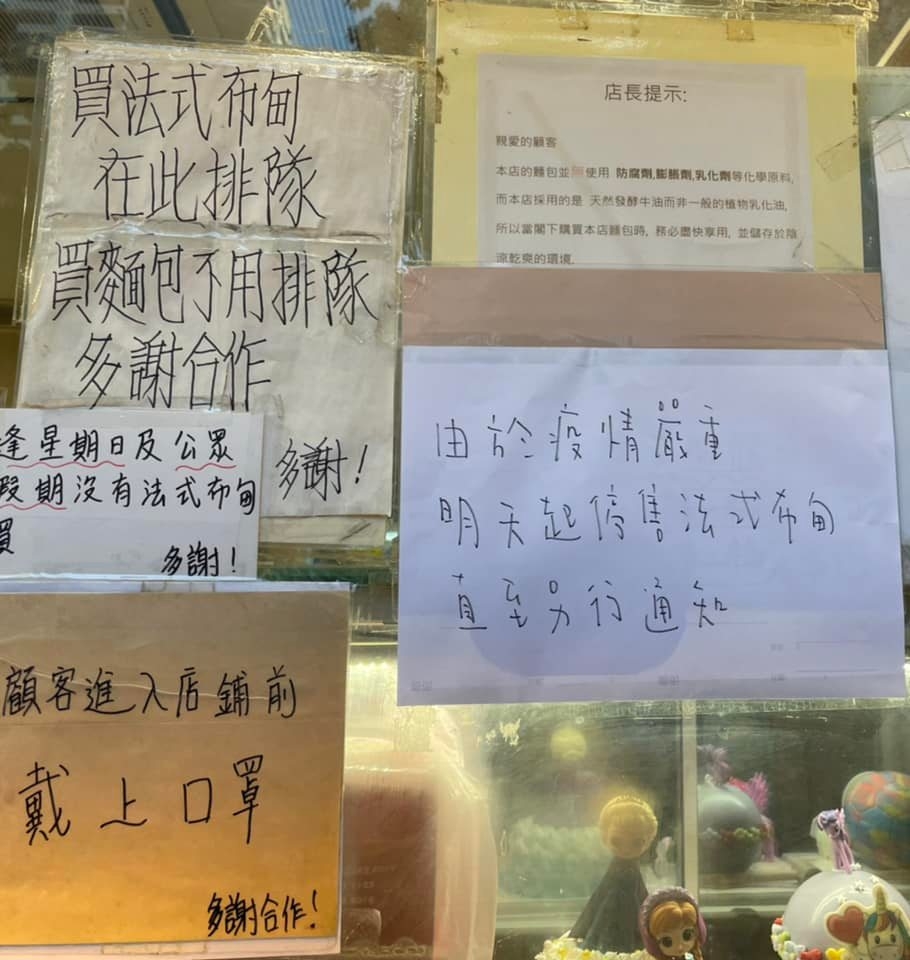 買法式布甸
在此排隊
買麵包不用排隊
多謝合作
多謝!
逢星期日及公眾
假期沒有法式布甸
買
多謝!
顧客進入店鋪前
戴上口罩
多謝合作!
店長提示:
親愛的顧客
本店的麵包並無使用 防腐劑,膨脹劑,乳化劑等化學原料,
而本店採用的是 天然發酵牛油而非一般的植物乳化油,
所以當閣下購買本店麵包時, 務必盡快享用, 並儲存於陰
涼乾爽的環境.
由於疫情嚴重
明天起停售法式布甸
直至另行通知